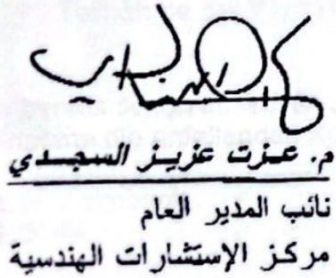 م. عزت عزيز السجدي
نائب المدير العام
مركز الإستشارات الهندسية